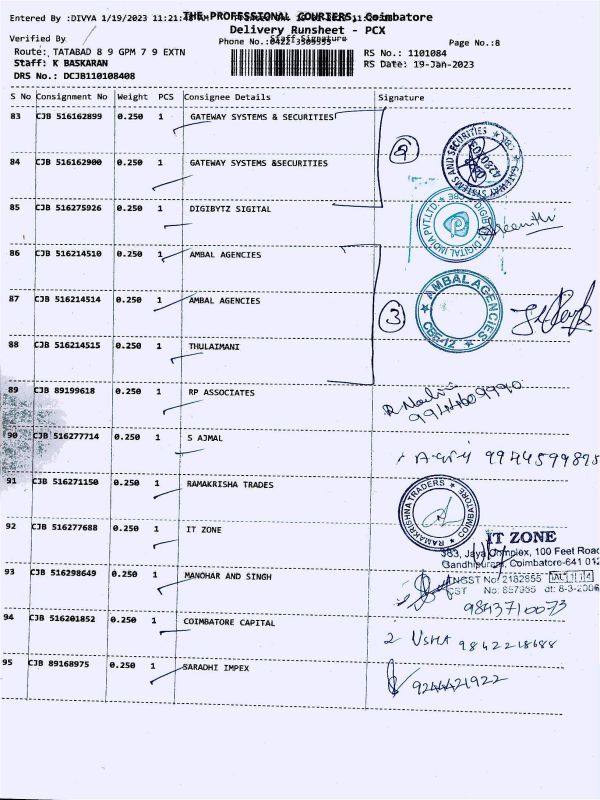 Entered By :DIVYA 1/19/2023 11:21: THE PROFESSIONAL COURIERS, Coimbatore
Delivery Runsheet - PCX
Verified By
Staff Signature
Phone No.:0422-3509555
Page No.:8
Route: TATABAD 8 9 GPM 7 9 EXTN
RS No.: 1101084
Staff: K BASKARAN
RS Date: 19-Jan-2023
DRS No.: DCJB110108408
S No Consignment No Weight PCS Consignee Details Signature
83 CJB 516162899 0.250 1 GATEWAY SYSTEMS & SECURITIES
GATEWAY SYSTEMS AND SECURITIES
CBE
84 CJB 516162900 0.250 1 GATEWAY SYSTEMS &SECURITIES
85 CJB 516275926 0.250 1 DIGIBYTZ SIGITAL
DIGIBYTZ DIGITAL INDIA PVT.LTD.
CBE
86 CJB 516214510 0.250 1 AMBAL AGENCIES
87 CJB 516214514 0.250 1 AMBAL AGENCIES
3
AMBAL AGENCIES
CBE-12
88 CJB 516214515 0.250 1 THULAIMANI
89 CJB 89199618 0.250 1 RP ASSOCIATES
9944609990
90 CJB 516277714 0.250 1 S AJMAL
9944599895
91 CJB 516271150 0.250 1 RAMAKRISHA TRADES
RAMAKRISHNA TRADERS
COIMBATORE
92 CJB 516277688 0.250 1 IT ZONE
IT ZONE
383, Jaya Complex, 100 Feet Road
Gandhipuram, Coimbatore-641 012
93 CJB 516298649 0.250 1 MANOHAR AND SINGH
TNGST No: 2182655
CST No: 857985 dt: 8-3-2006
9843710073
94 CJB 516201852 0.250 1 COIMBATORE CAPITAL
2 USHA 9842218688
95 CJB 89168975 0.250 1 SARADHI IMPEX
9244421922